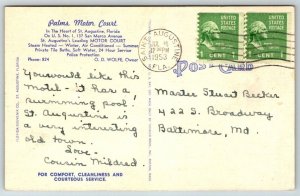 Palms Motor Court
In The Heart of St. Augustine, Florida
On U. S. No. 1, 137 San Marco Avenue
St. Augustine's Leading MOTOR COURT
Steam Heated — Winter, Air Conditioned — Summer
Private Tile Baths, Soft Water, 24 Hour Service
Police Protection
Phone: 824 O. D. WOLFE, Owner
SAINT AUGUSTINE
JUL
1953
FLA.
UNITED STATES POSTAGE
1 CENT
UNITED STATES POSTAGE
1 CENT
POST CARD
You would like this
motel - it has a
swimming pool!
St. Augustine is
a very interesting
old town.
Love -
Cousin Mildred.
Master Stuart Becker
422 S. Broadway
Baltimore, Md.
FOR COMFORT, CLEANLINESS AND
COURTEOUS SERVICE.